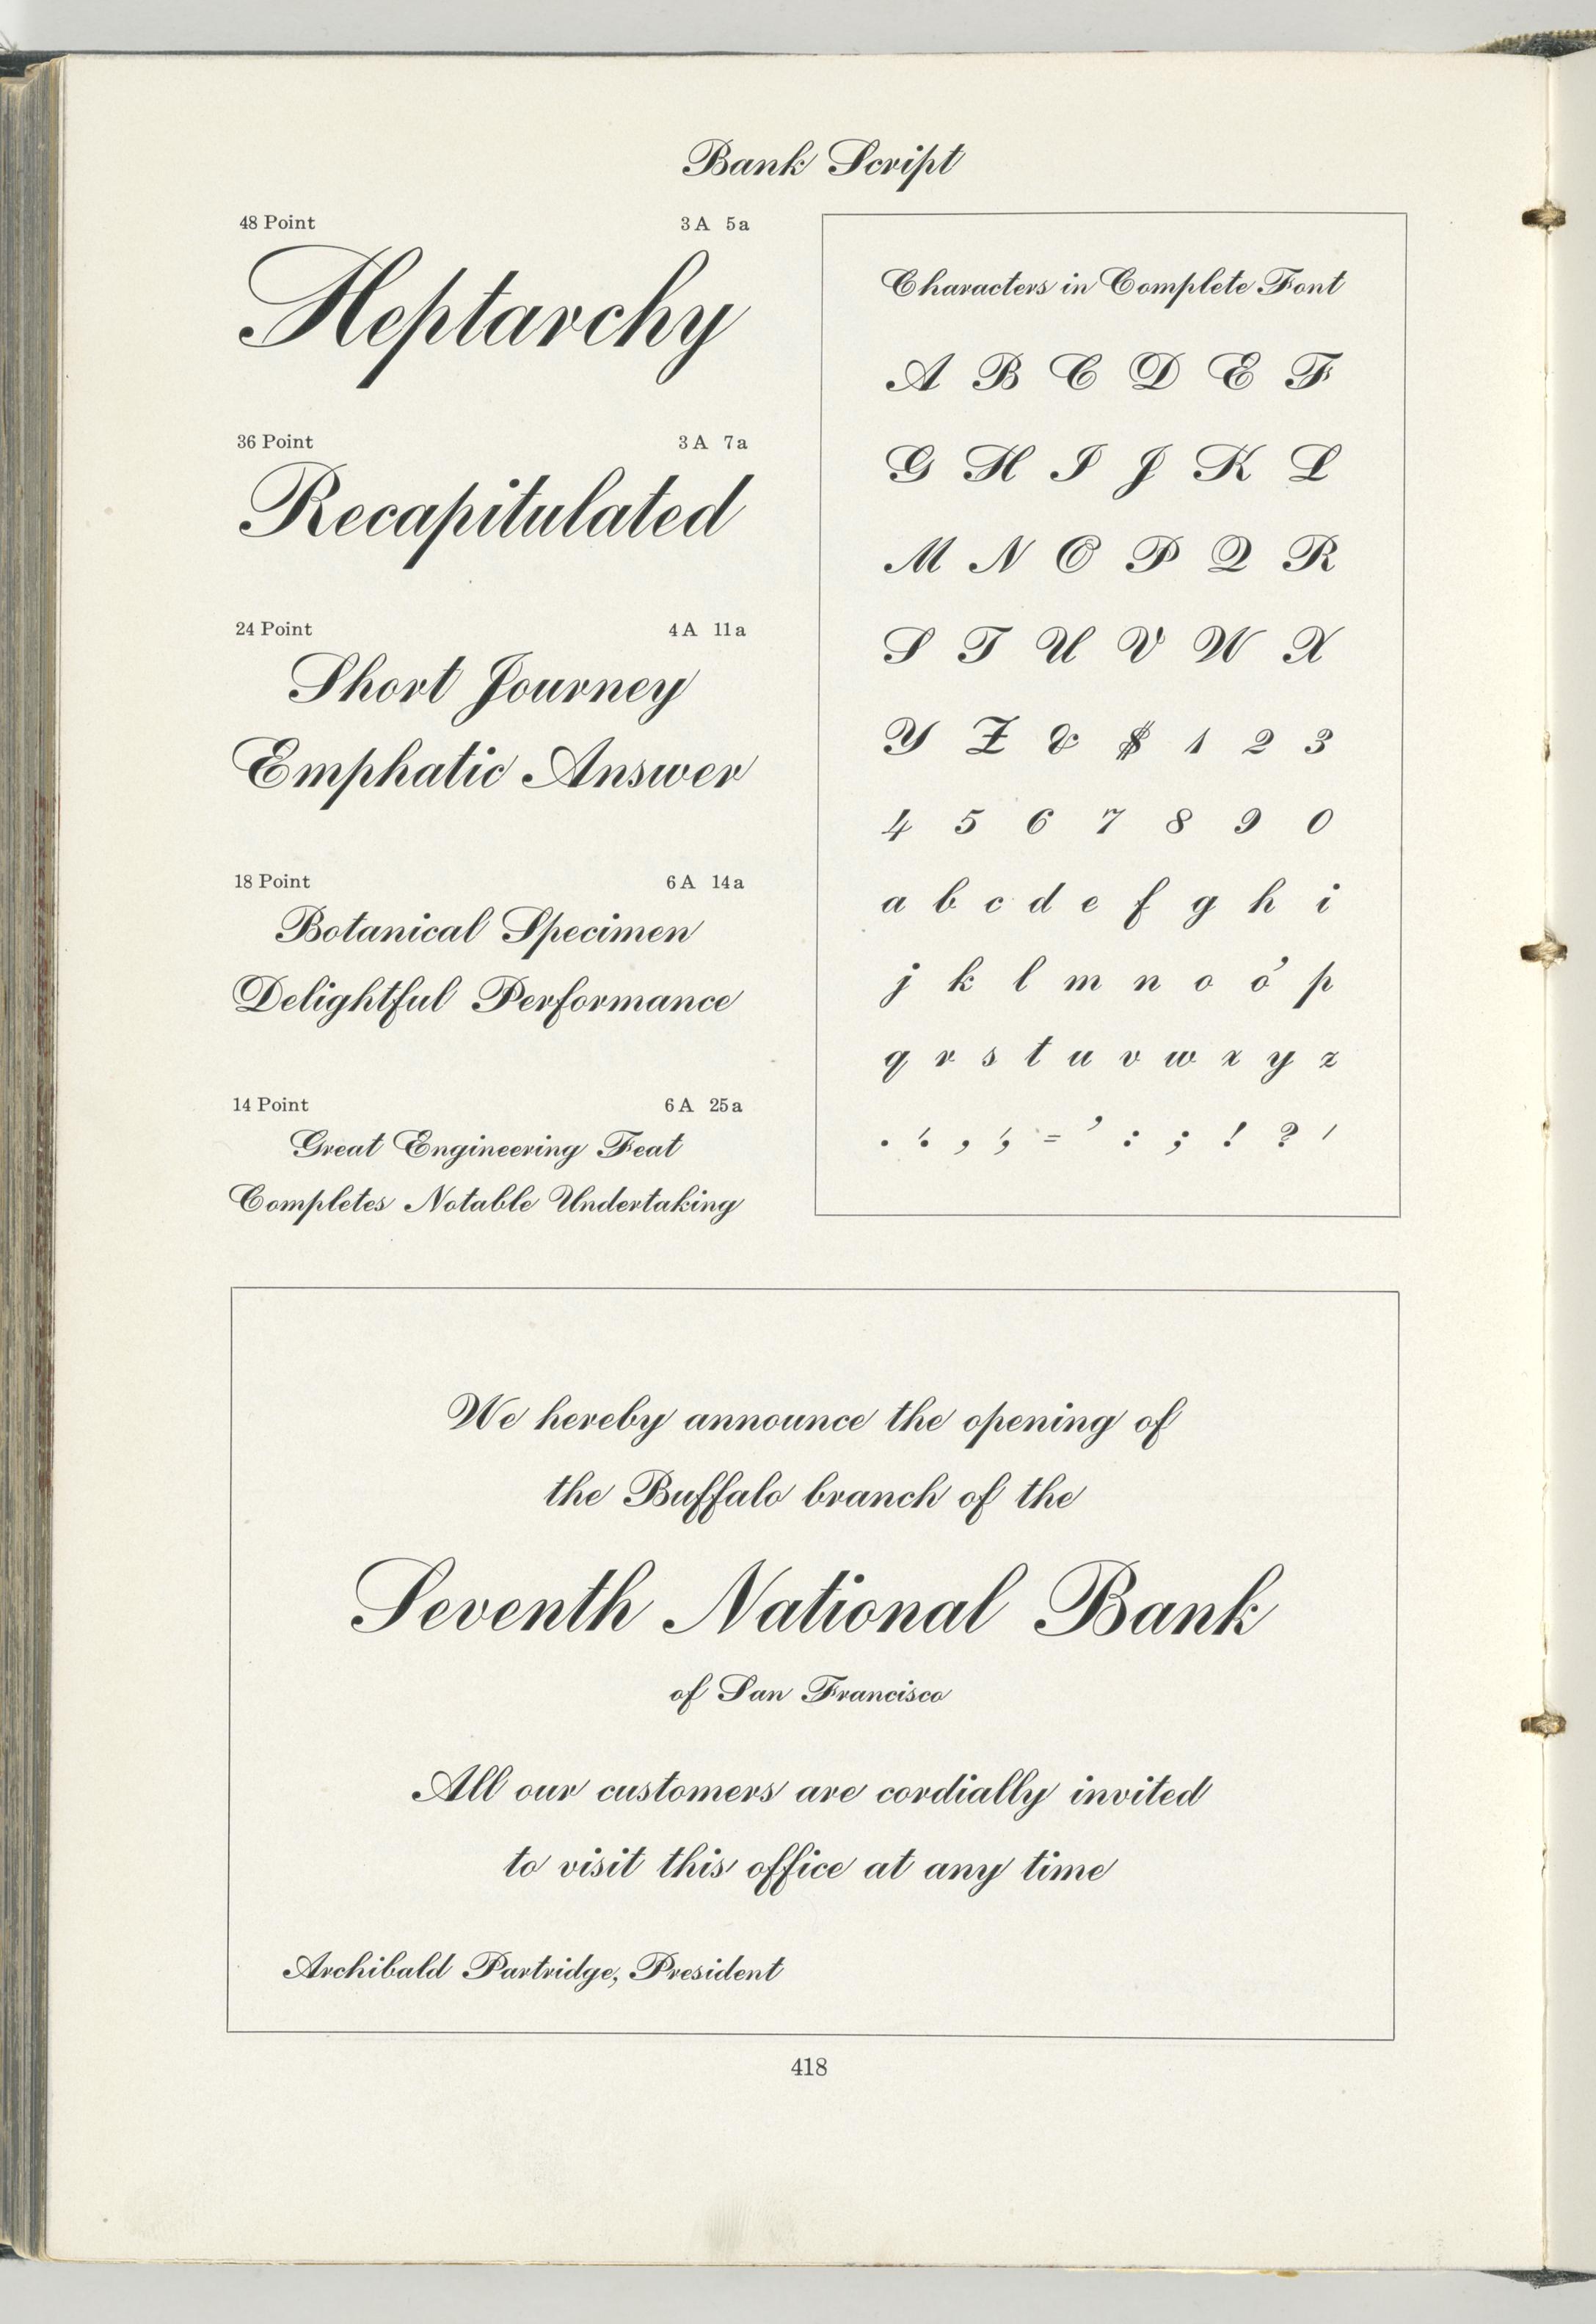 Bank Script
48 Point 3 A 5 a
Heptarchy
36 Point 3 A 7 a
Recapitulated
24 Point 4 A 11 a
Short Journey
Emphatic Answer
18 Point 6 A 14 a
Botanical Specimen
Delightful Performance
14 Point 6 A 25 a
Great Engineering Feat
Completes Notable Undertaking
Characters in Complete Font
A B C D E F
G H I J K L
M N O P Q R
S T U V W X
Y Z & $ 1 2 3
4 5 6 7 8 9 0
a b c d e f g h i
j k l m n o o' p
q r s t u v w x y z
. '. , ', = ' : ; ! ? /
We hereby announce the opening of
the Buffalo branch of the
Seventh National Bank
of San Francisco
All our customers are cordially invited
to visit this office at any time
Archibald Partridge, President
418